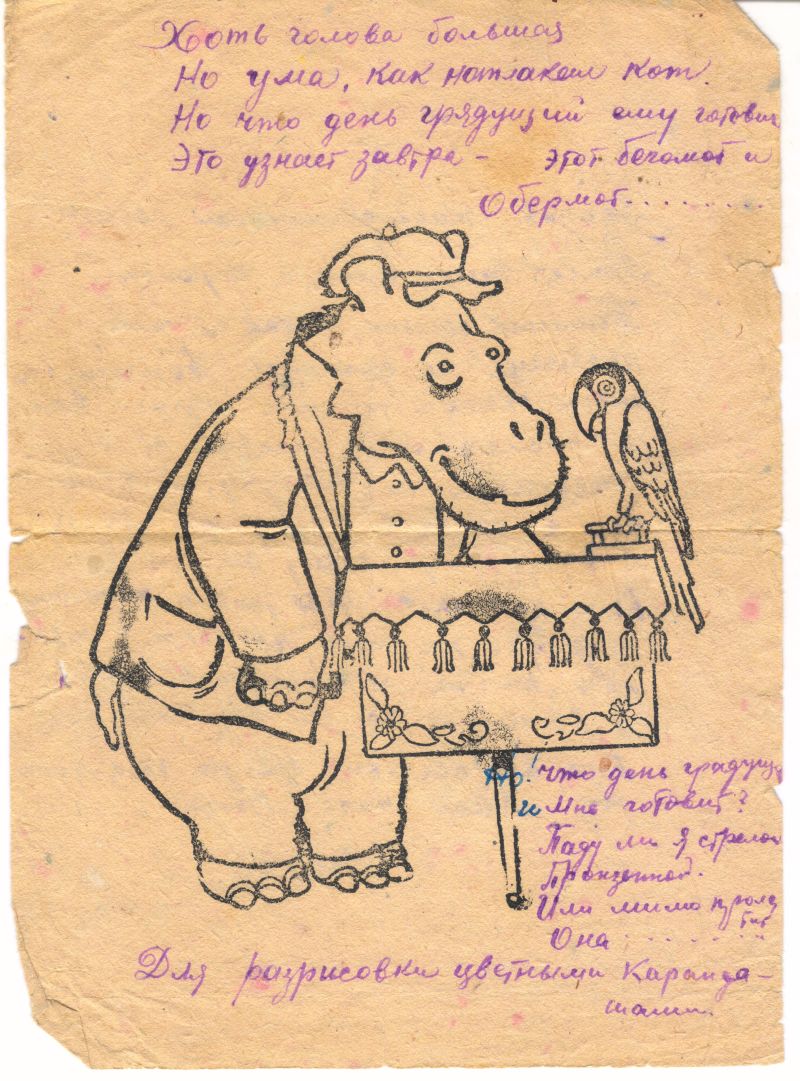 Хоть голова большая
Но ума, как наплакал кот.
Но что день грядущий ему готовит
Это узнает завтра - этот бегомот и
Обермот........
Но! что день грядущ
и Мне готовит?
Паду ли я стрелой
Пронзенной.
Или мимо пролетит
Она.......
Для разрисовки цветными Каранда-
шами.